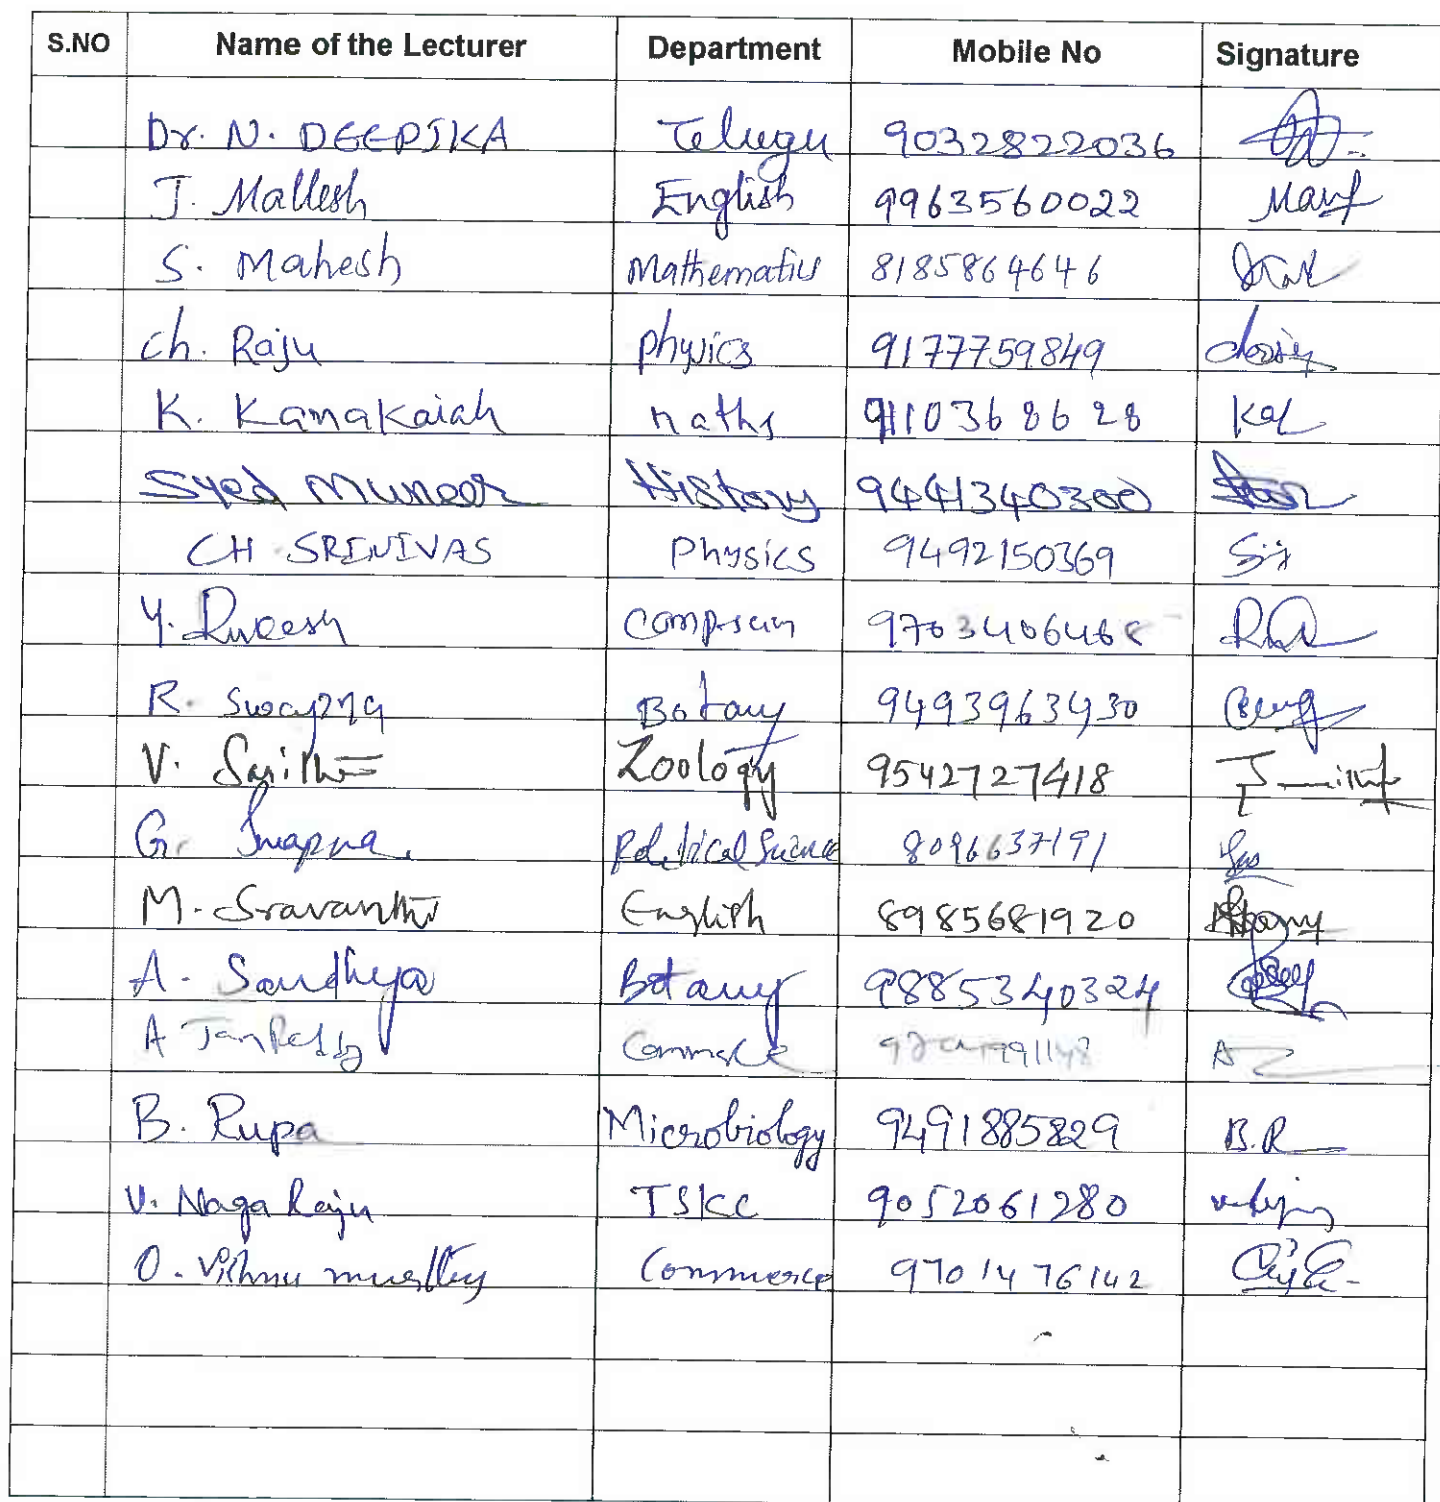 S.NO Name of the Lecturer Department Mobile No Signature
Dr. N. DEEPIKA Telugu 9032822036
J. Mallesh English 9963560022
S. Mahesh Mathematics 8185864646
Ch. Raju physics 9177759849
K. Kanakaiah maths 9110368628
Syed Muneer History 9441340300
CH SRINIVAS Physics 9492150369
Y.
R. Swapna Botany 9493963430
V. Saritha Zoology 9542727418
G. Swapna Political Science 8096637191
M. Sravanthi English 8985681920
A. Sandhya Botany 9885340324
A Commerce
B. Rupa Microbiology 9491885829 B.R
V. Naga Raju TSKC 9052061280
O. Vishnu murthy Commerce 9701476142